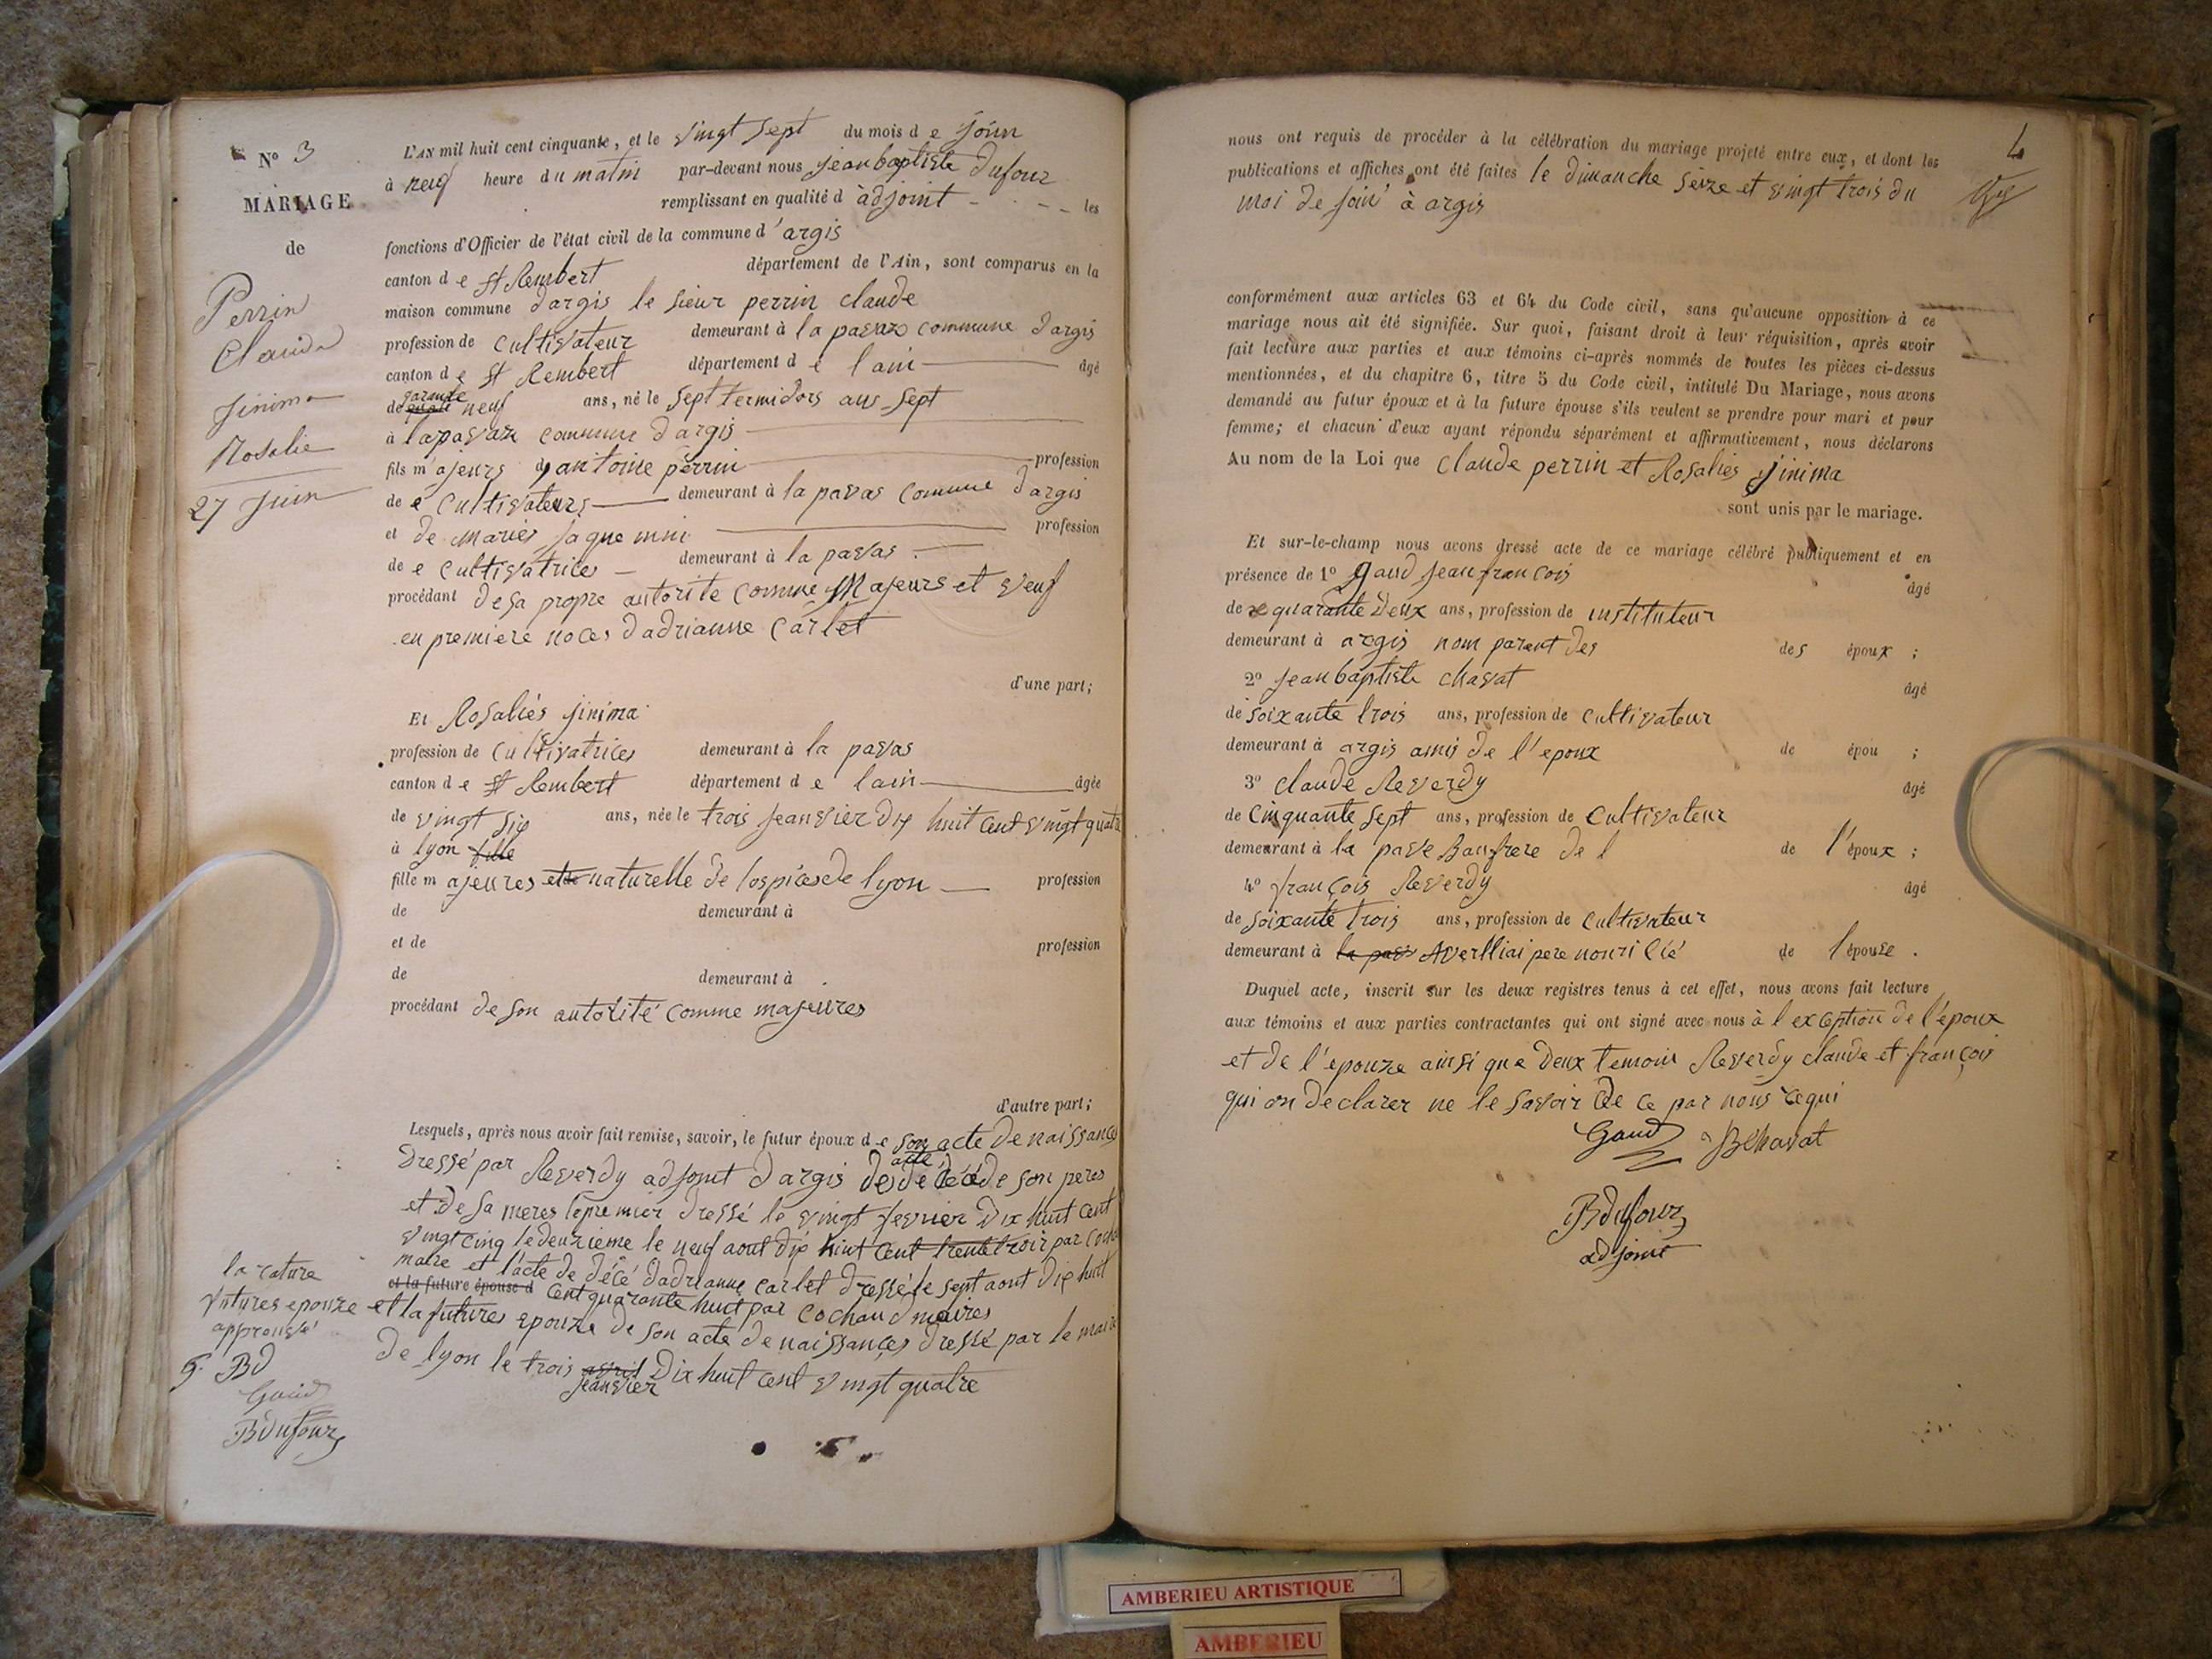 N° 3
MARIAGE
de
Perrin
Claude
Jinima
Rosalie
27 Juin
L'AN mil huit cent cinquante, et le vingt sept du mois d e join
à neuf heure du matin par-devant nous jean baptiste Dufour
remplissant en qualité d adjoint les
fonctions d'Officier de l'état civil de la commune d'argis
canton d e St Rembert département de l'Ain, sont comparus en la
maison commune d'argis le sieur perrin claude
profession de cultivateur demeurant à la pavaz commune d'argis
canton d e St Rembert département d e l ain âgé
de neuf ans, né le sept termidors ans sept
à lapavaz commune d'argis
fils majeurs d antoine perrin profession
de e cultivateurs demeurant à la pavas commune d'argis
et de maries jaquemini profession
de e cultivatrices demeurant à la pavas
procédant de sa propre autorite comme Majeurs et veuf
en premiere noces d'adrianne Carlet
d'une part;
Et Rosalies jinima
profession de cultivatrices demeurant à la pavas
canton d e St Rembert département d e lain âgée
de vingt six ans, née le trois jeanvier dix huit cent vingt quatre
à lyon fille
fille majeures naturelle de lospices de lyon profession
de demeurant à
et de profession
de demeurant à
procédant de son autorité comme majeures
d'autre part;
Lesquels, après nous avoir fait remise, savoir, le futur époux d e son acte de naissance
acte
dressé par Reverdy adjoint d'argis de son peres
et de sa meres le premier dressé le vingt fevrier dix huit cent
vingt cinq le deuzieme le neuf aout dix huit cent trente trois par
maire et l'acte de décé d'adrianne carlet dressé le sept aout dix huit
et la future épouse d cent quarante huit par cochaud maires
et la futures epouze de son acte de naissances dressé par le maire
de lyon le trois avril Dix huit cent vingt quatre
jeanvier
la rature
futures epouze
approuvé
BD
Gaud
BDufour
4
nous ont requis de procéder à la célébration du mariage projeté entre eux, et dont les
publications et affiches ont été faites le dimanche seize et vingt trois du
moi de join à argis
conformément aux articles 63 et 64 du Code civil, sans qu'aucune opposition à ce
mariage nous ait été signifiée. Sur quoi, faisant droit à leur réquisition, après avoir
fait lecture aux parties et aux témoins ci-après nommés de toutes les pièces ci-dessus
mentionnées, et du chapitre 6, titre 5 du Code civil, intitulé Du Mariage, nous avons
demandé au futur époux et à la future épouse s'ils veulent se prendre pour mari et pour
femme; et chacun d'eux ayant répondu séparément et affirmativement, nous déclarons
Au nom de la Loi que Claude perrin et Rosalies jinima
sont unis par le mariage.
Et sur-le-champ nous avons dressé acte de ce mariage célébré publiquement et en
présence de 1° gaud jean francois âgé
de quarante deux ans, profession de instituteur
demeurant à argis nom parent des des époux ;
2° jean baptiste chavat âgé
de soixante trois ans, profession de cultivateur
demeurant à argis amis de l'epoux de épou ;
3° claude Reverdy âgé
de Cinquante sept ans, profession de cultivateur
demeurant à la pave Baufrere de l de l'époux ;
4° françois Reverdy âgé
de soixante trois ans, profession de cultivateur
demeurant à la pavas averlliai pere nouricié de l'épouse .
Duquel acte, inscrit sur les deux registres tenus à cet effet, nous avons fait lecture
aux témoins et aux parties contractantes qui ont signé avec nous à l exception de l'époux
et de l'epouze ainsi que deux temoin Reverdy claude et françois
qui on declarer ne le savoir de ce par nous requi
Gaud
BDufour
adjoint
AMBERIEU ARTISTIQUE
AMBERIEU